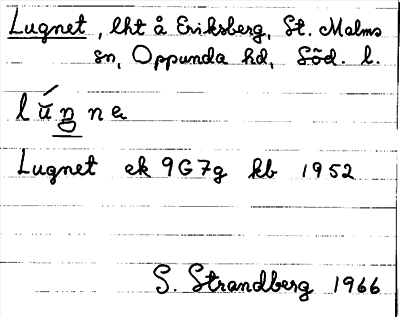 Lugnet, lht å Eriksberg, St. Malms
sn, Oppunda hd, Söd. l.
lúŋne
Lugnet ek 9G7g kb 1952
S. Strandberg 1966